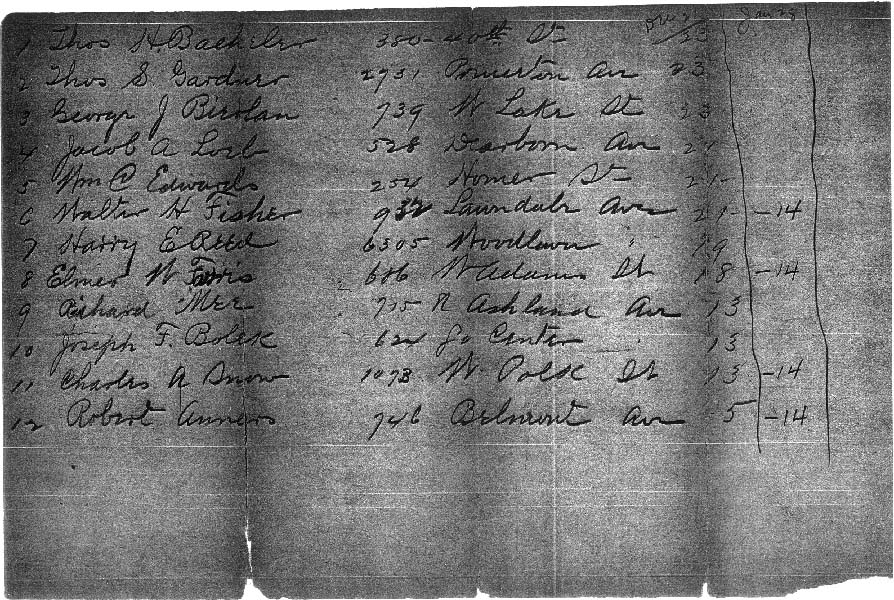 Jan 23
1 Thos H. Bacheler 380-40th St 23
2 Thos S Gardner 2931 Av 23
3 George J 739 W Lake St 23
4 Jacob A Loeb 528 Dearborn Av 21
5 Wm C Edwards 254 Homer St 21-
6 Walter H Fisher 932 Lawndale Ave 21- -14
7 Harry E Reed 6305 Woodlawn " 19
8 Elmer W Ferris 686 W Adams St 18 -14
9 Richard Mee 715 N Ashland Av 13
10 Joseph F. Bolek 624 So Center 13
11 Charles A Snow 1073 W Polk St 13 -14
12 Robert Anners 746 Belmont Av 5 -14